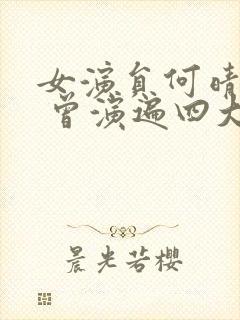 女演员何晴
曾演遍四大
晨光若樱